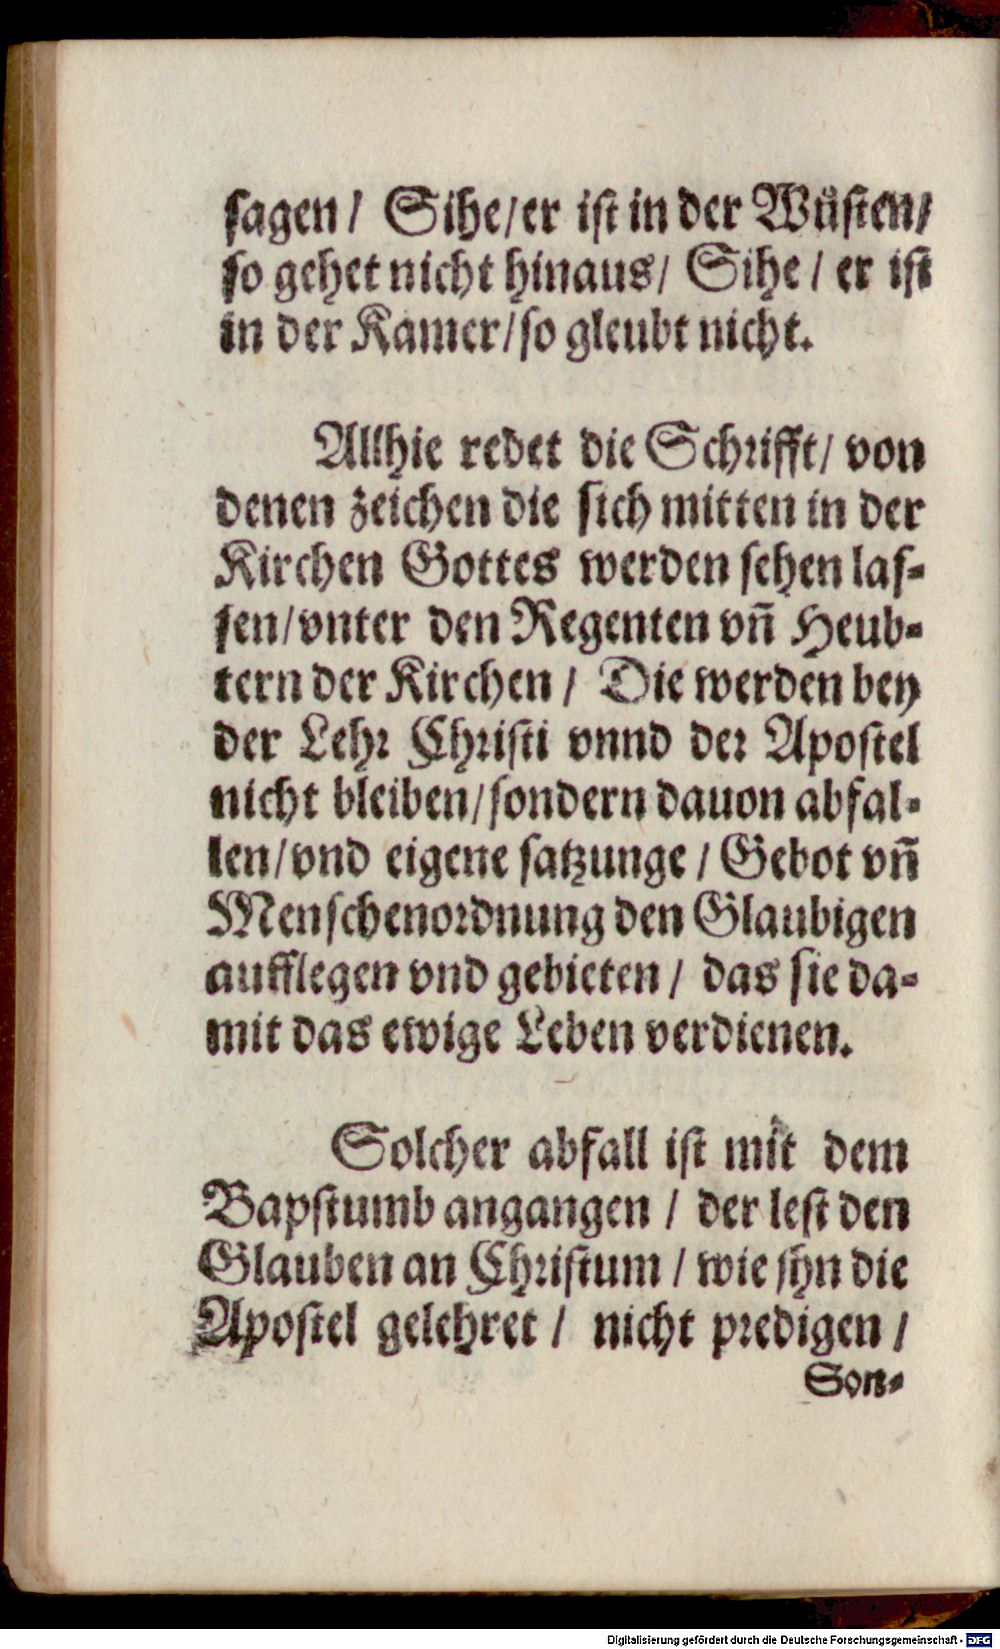 sagen / Sihe/er ist in der Wuͤsten/
so gehet nicht hinaus/ Sihe / er ist
in der Kamer/so gleubt nicht.
Allhie redet die Schrifft/ von
denen zeichen die sich mitten in der
Kirchen Gottes werden sehen las-
sen/vnter den Regenten vñ Heub-
tern der Kirchen / Die werden bey
der Lehr Christi vnnd der Apostel
nicht bleiben/sondern dauon abfal-
len/vnd eigene satzunge / Gebot vñ
Menschenordnung den Glaubigen
aufflegen vnd gebieten / das sie da-
mit das ewige Leben verdienen.
Solcher abfall ist mit dem
Bapstumb angangen / der lest den
Glauben an Christum / wie jhn die
Apostel gelehret / nicht predigen /
Son-
Digitalisierung gefördert durch die Deutsche Forschungsgemeinschaft - DFG